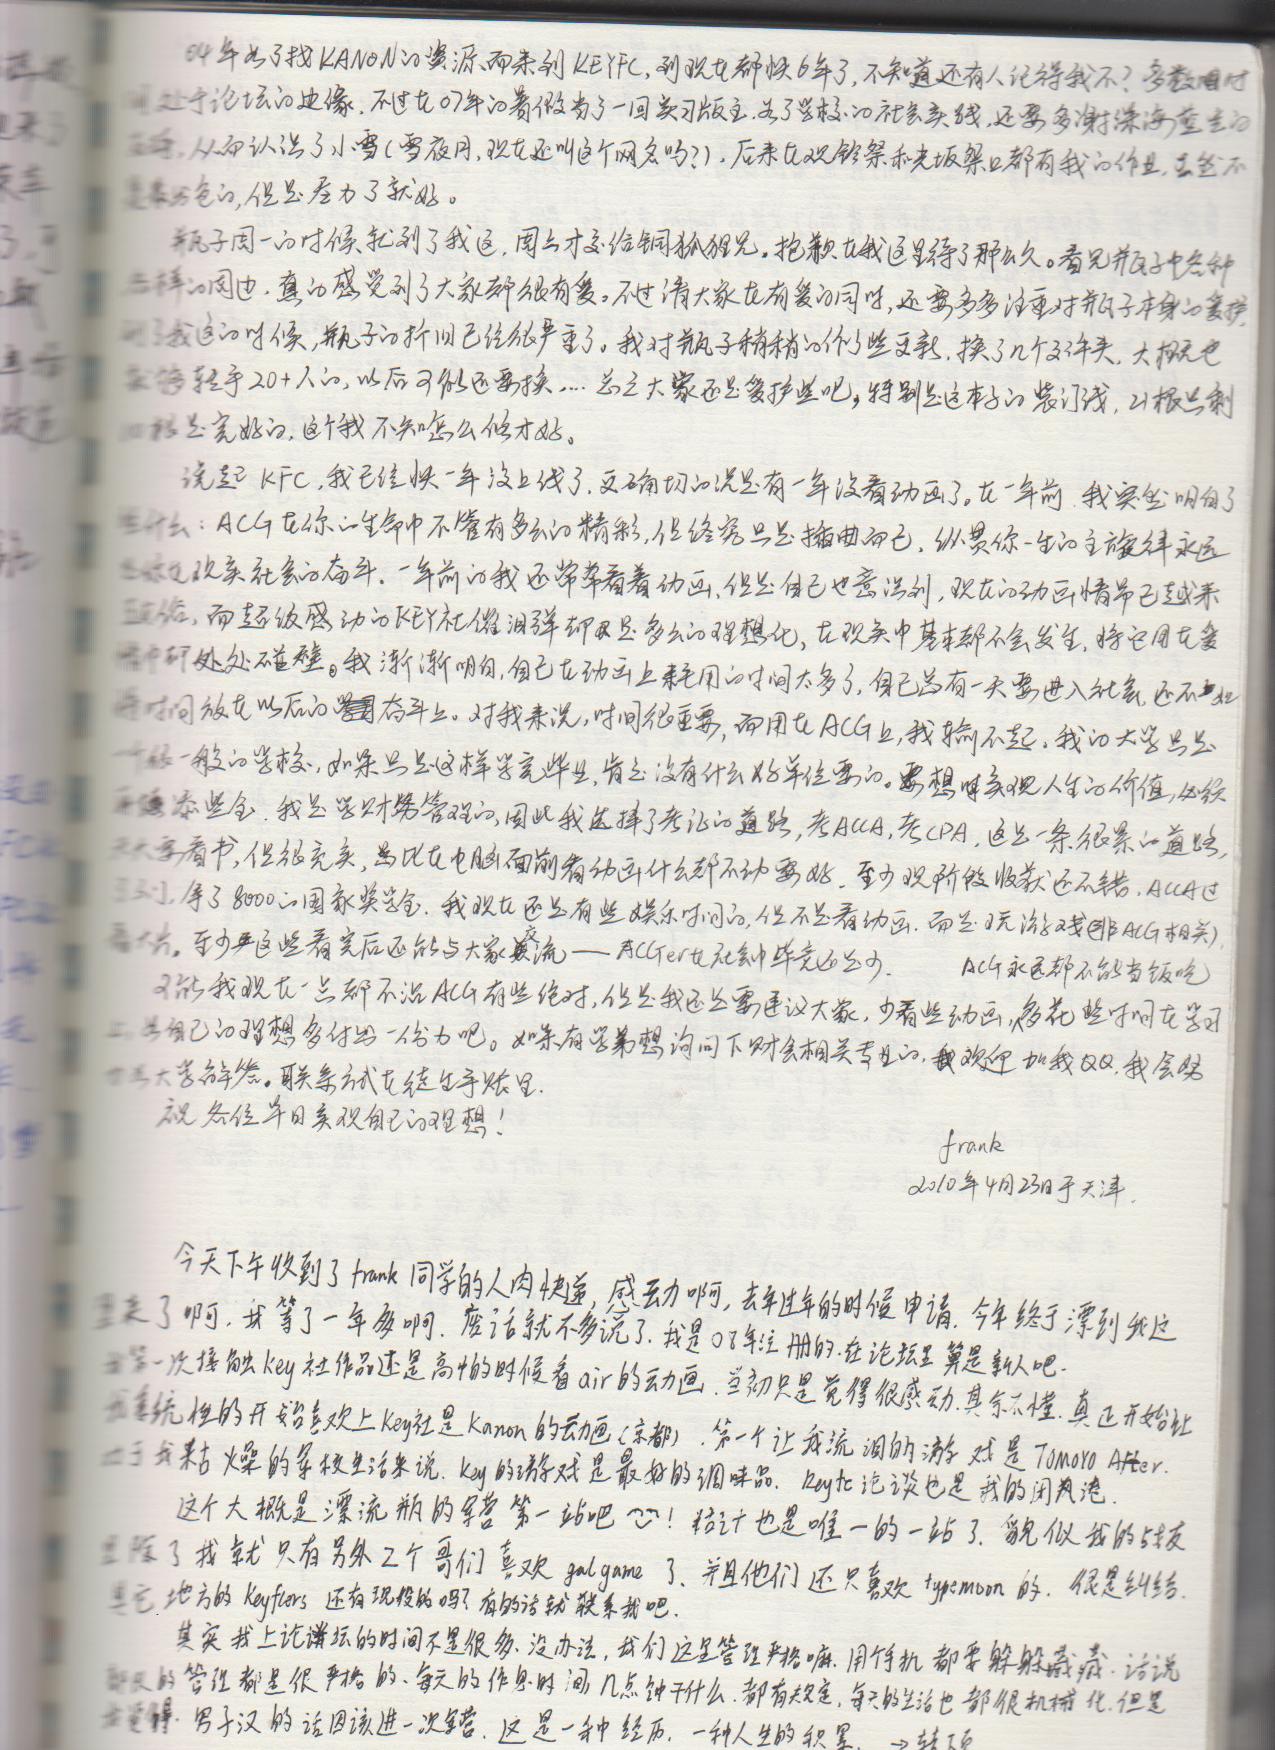 04年为了找KANON的资源而来到KEYFC,到现在都快6年了,不知道还有人记得我不?多数时
处于论坛的边缘.不过在07年的暑假当了一回实习版主.为了学校的社会实践,还要多谢深海蓝生的
从而认识了小雪(雪夜月,现在还叫这个网名吗?),后来在观铃祭和光坂祭口都有我的作业,虽然不
是最出色的,但是尽力了就好。
瓶子周一的时候就到了我这,周六才交给铜狐狸兄。抱歉在我这里待了那么久。看见瓶子中各种
各样的周边,真的感受到了大家都很有爱。不过请大家在有爱的同时,还要多多注重对瓶子本身的爱护,
到了我这的时候,瓶子的折旧已经很严重了。我对瓶子稍稍的作了些更新,换了几个文件夹,大概也
能够转手20+人的,以后可能还要换....总之大家还是爱护些吧,特别是这本子的装订线,21根只剩
根是完好的,这个我不知怎么修才好。
说起KFC,我已经快一年没上线了,更确切的说是有一年没看动画了。在一年前,我突然明白了
些什么:ACG在你的生命中不管有多么的精彩,但终究只是插曲而已,纵贯你一生的主旋律永远
是你在现实社会的奋斗.一年前的我还常常看着动画,但是自己也意识到,现在的动画情节已越来
而超级感动的KEY社催泪弹却又是多么的理想化,在现实中基本都不会发生,将它用在爱
情中却处处碰壁。我渐渐明白,自己在动画上耗用的时间太多了,自己总有一天要进入社会,还不如
将时间放在以后的奋斗上。对我来说,时间很重要,而用在ACG上,我输不起。我的大学只是
一个很一般的学校,如果只是这样学完毕业,肯定没有什么好单位要的。要想实现人生的价值,必须
添些金.我是学财务管理的,因此我选择了考证的道路,考ACCA,考CPA,这是一条很累的道路,
天天要看书,但很充实,总比在电脑面前看动画什么都不动要好.至少现阶段收获还不错,ACCA过
了3门,拿了8000的国家奖学金.我现在还是有些娱乐时间的,但不是看动画.而是玩游戏(非ACG相关),
看大片。至少这些看完后还能与大家交流——ACGer在社会中毕竟还是少. ACG永远都不能当饭吃
可能我现在一点都不沾ACG有些绝对,但是我还是要建议大家,少看些动画,多花些时间在学习
上,为自己的理想多付出一份力吧。如果有学弟想询问下财会相关专业的,我欢迎加我QQ,我会努
力为大家解答。联系方式在徒生手账里.
祝各位早日实现自己的理想!
frank
2010年4月23日于天津.
今天下午收到了frank同学的人肉快递,感动啊,去年过年的时候申请.今年终于漂到我这
里来了啊,我等了一年多啊.废话就不多说了.我是08年注册的.在论坛里算是新人吧.
我第一次接触key社作品还是高中的时候看air的动画.当初只是觉得很感动.其余不懂.真正开始让
我系统性的开始喜欢上key社是Kanon的动画(京都).第一个让我流泪的游戏是TOMOYO After.
对于我枯燥的军校生活来说.Key的游戏是最好的调味品.Keyfc论谈也是我的闭风港.
这个大概是漂流瓶的军营第一站吧!估计也是唯一的一站了.貌似我的战友
里除了我就只有另外2个哥们喜欢galgame了.并且他们还只喜欢typemoon的.很是纠结.
其它地方的Keyfcers还有现役的吗?有的话就联系我吧.
其实我上论坛的时间不是很多.没办法,我们这里管理严格嘛.用个手机都要躲躲藏藏.话说
部队的管理都是很严格的.每天的作息时间,几点钟干什么.都有规定,每天的生活也都很机械化.但是
我觉得.男子汉的话因该进一次军营.这是一种经历.一种人生的积累. →转下页